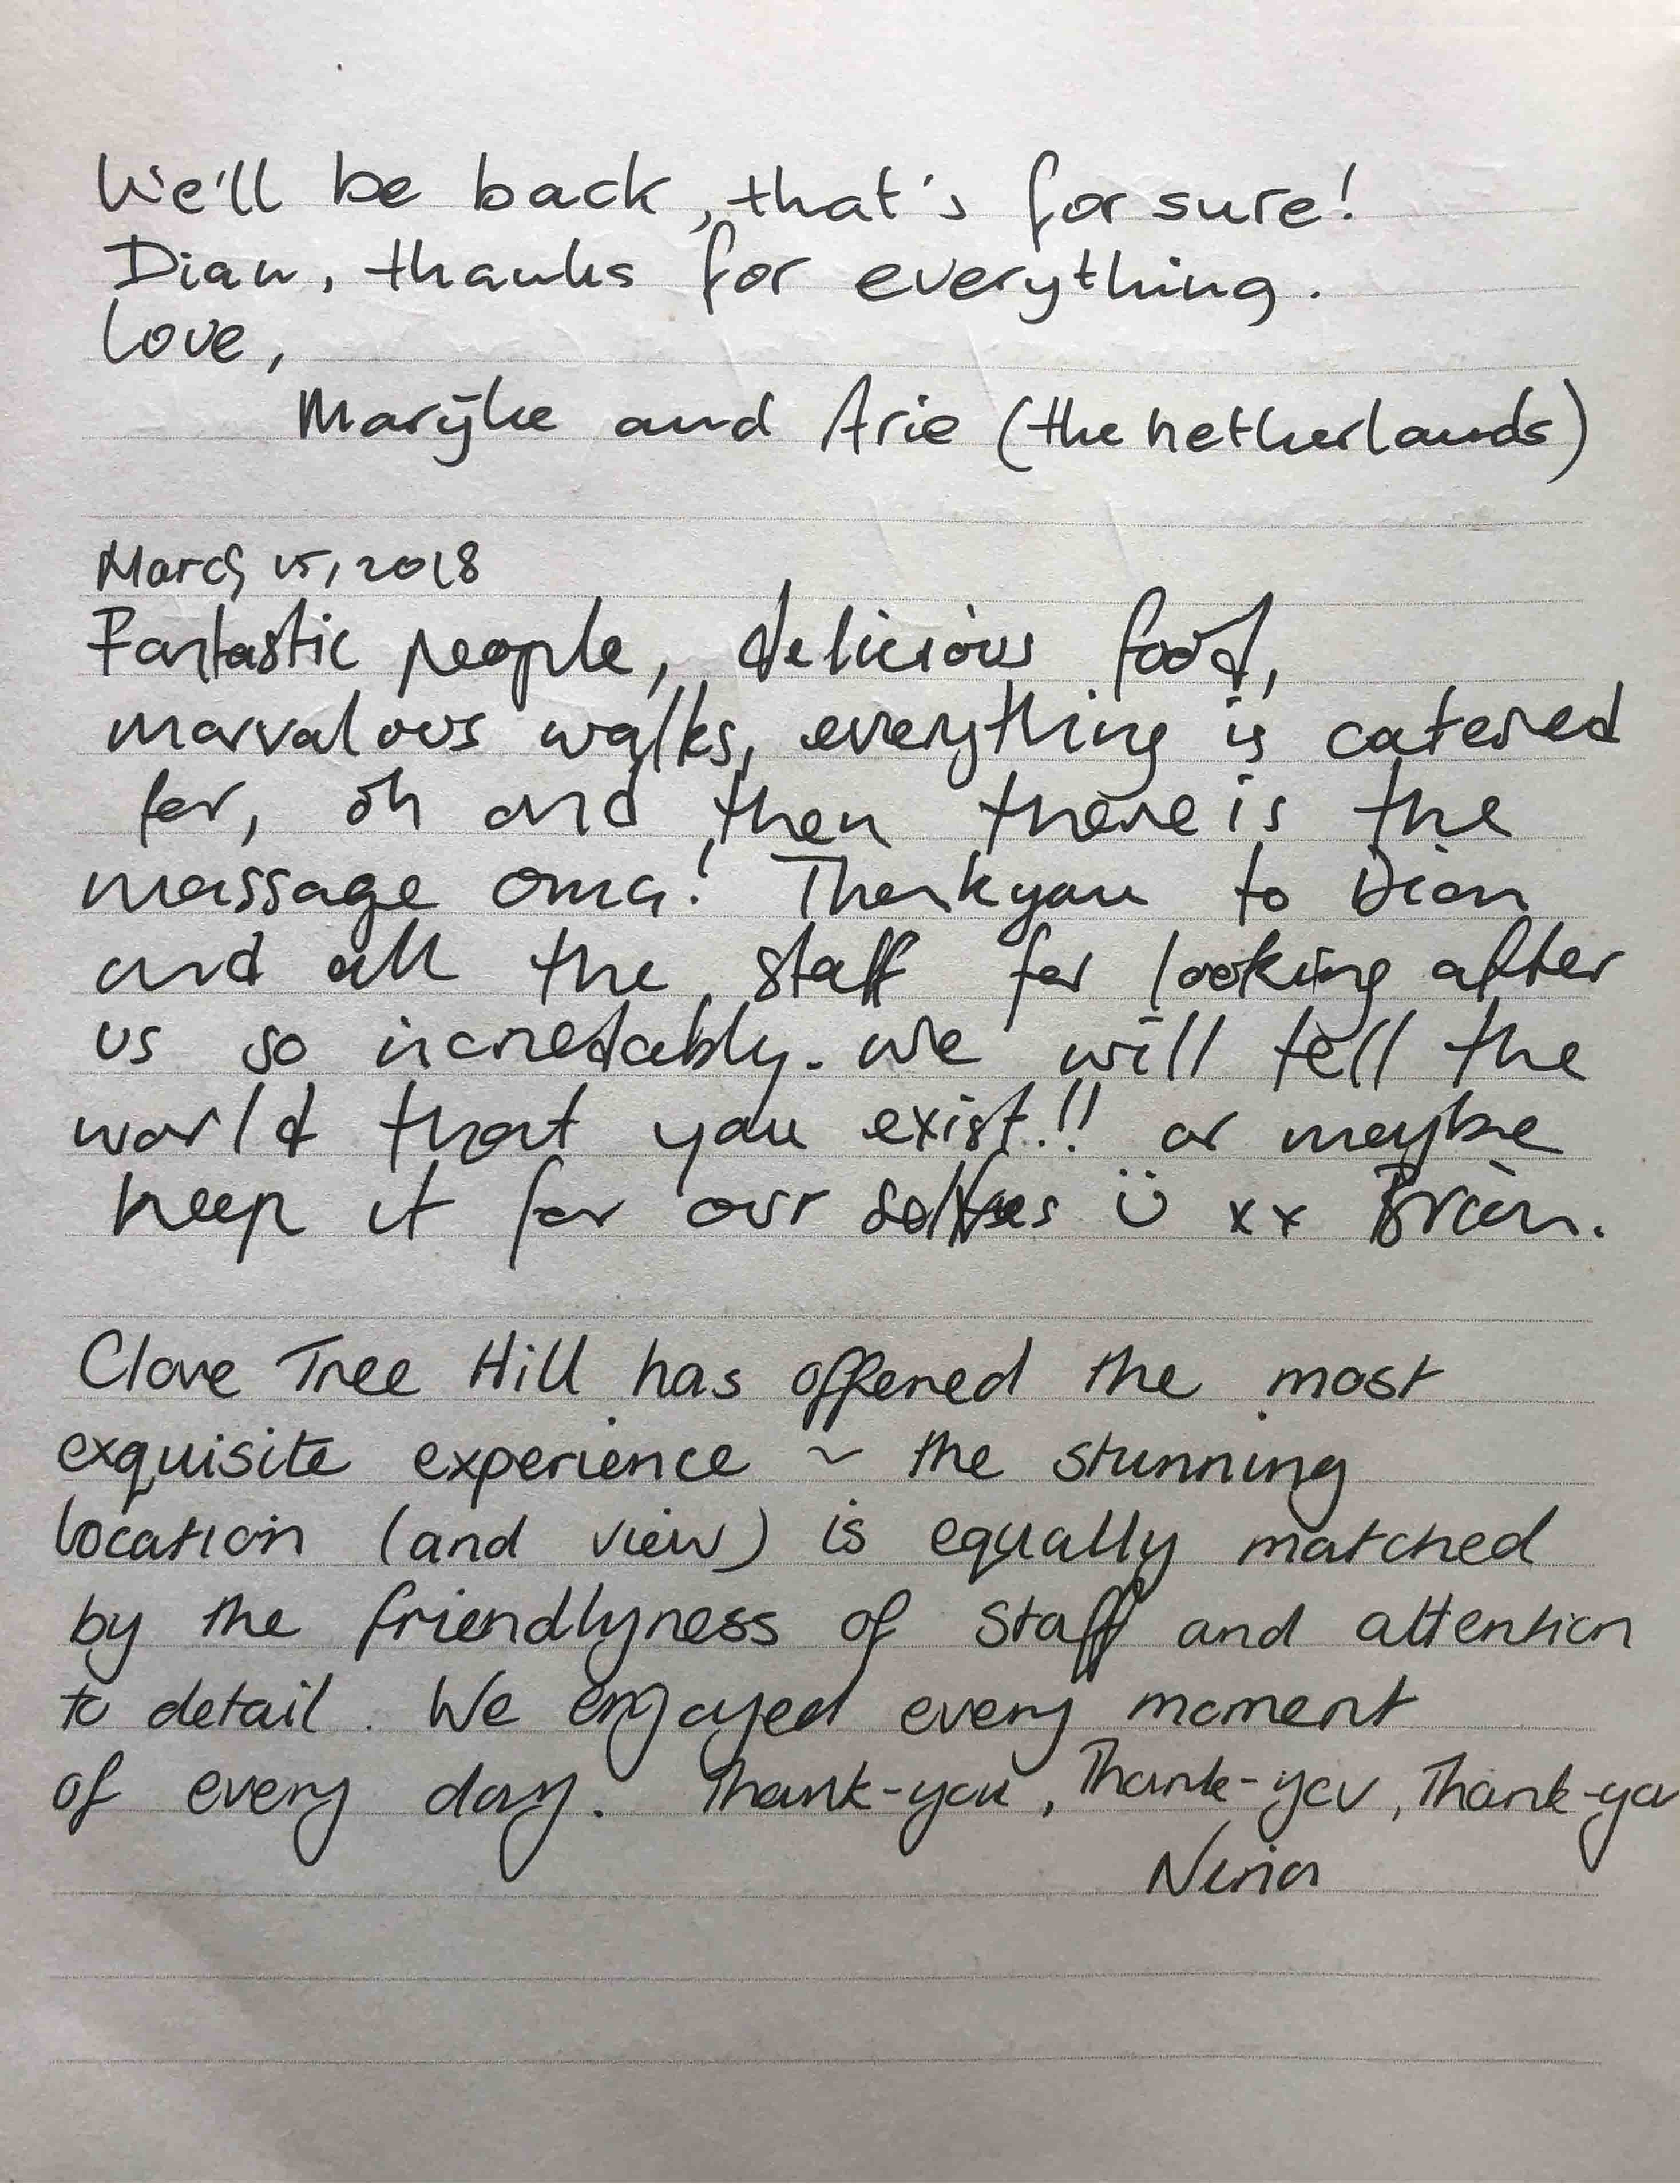 We'll be back, that's for sure!
Dian, thanks for everything.
Love,
Marijke and Arie (the netherlands)
March 15, 2018
Fantastic people, delicious food,
marvalous walks, everything is catered
for, oh and then there is the
massage omg! Thankyou to Dian
and all the staff for looking after
us so incredably. We will tell the
world that you exist!! or maybe
keep it for our selves ü xx Brian.
Clove Tree Hill has offered the most
exquisite experience ~ the stunning
location (and view) is equally matched
by the friendlyness of staff and attention
to detail. We enjoyed every moment
of every day. Thank-you, Thank-you, Thank-yo
Nina